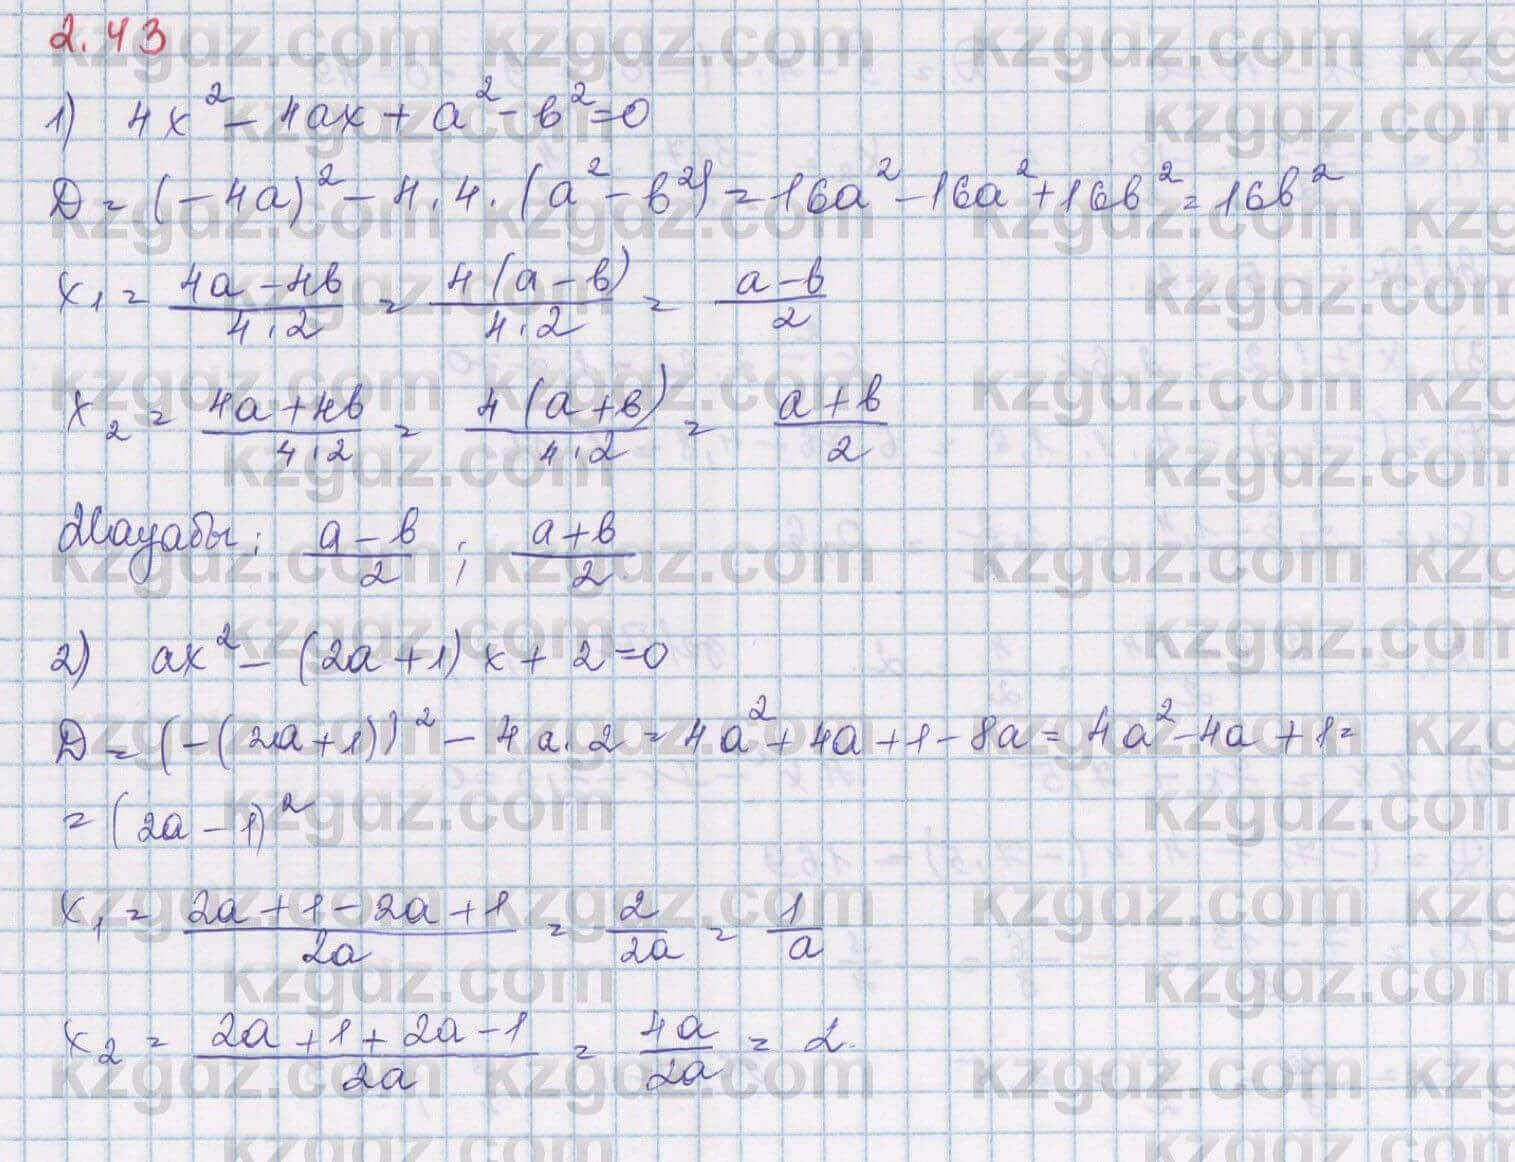 2.43
1) 4x² - 4ax + a² - b² = 0
D = (-4a)² - 4·4·(a² - b²) = 16a² - 16a² + 16b² = 16b²
x₁ = (4a - 4b)/(4·2) = 4(a - b)/(4·2) = (a - b)/2
x₂ = (4a + 4b)/(4·2) = 4(a + b)/(4·2) = (a + b)/2
Жауабы: (a - b)/2 ; (a + b)/2
2) ax² - (2a + 1)x + 2 = 0
D = (-(2a + 1))² - 4a·2 = 4a² + 4a + 1 - 8a = 4a² - 4a + 1 =
= (2a - 1)²
x₁ = (2a + 1 - 2a + 1)/2a = 2/2a = 1/a
x₂ = (2a + 1 + 2a - 1)/2a = 4a/2a = 2.
kzgdz.com